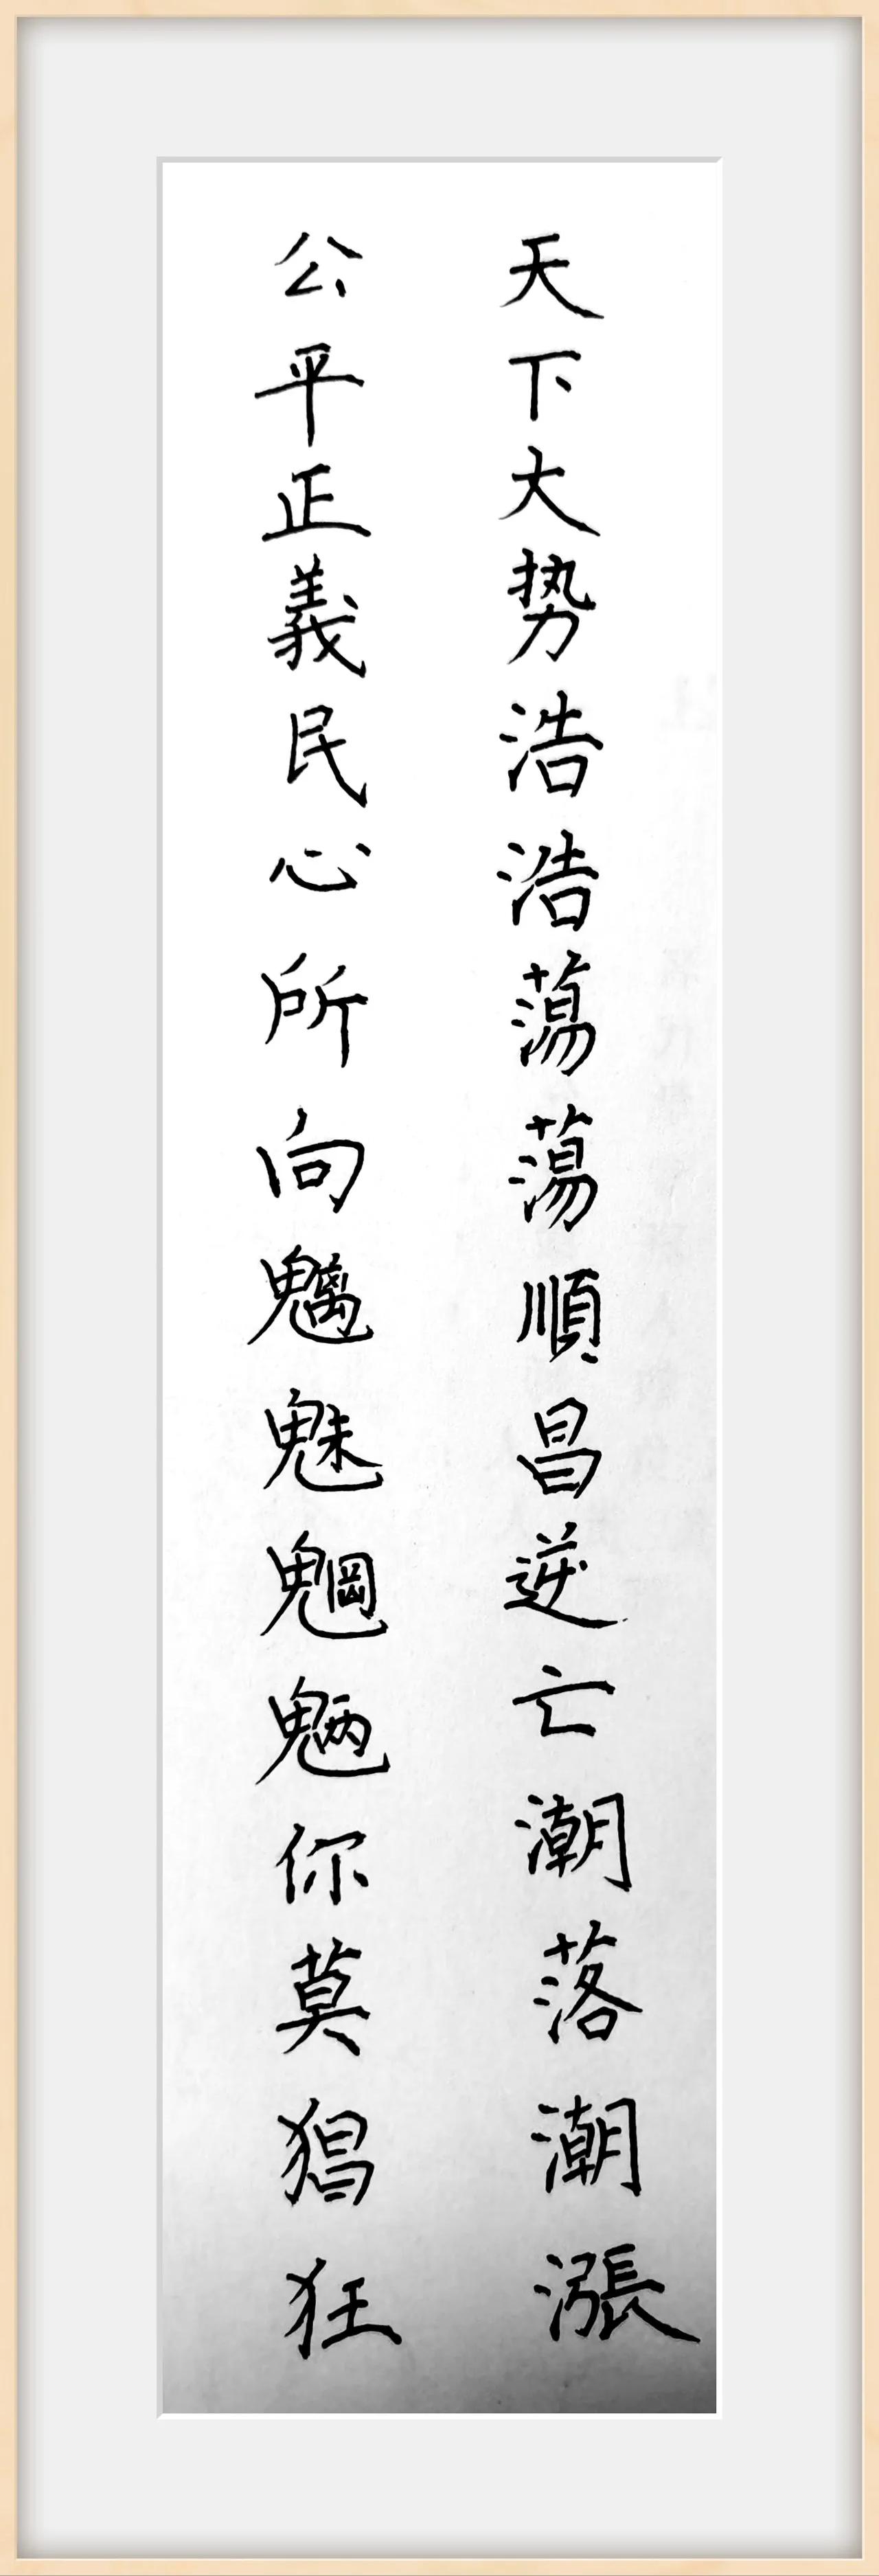 天下大势浩浩蕩蕩順昌逆亡潮落潮漲
公平正義民心所向魑魅魍魎你莫猖狂